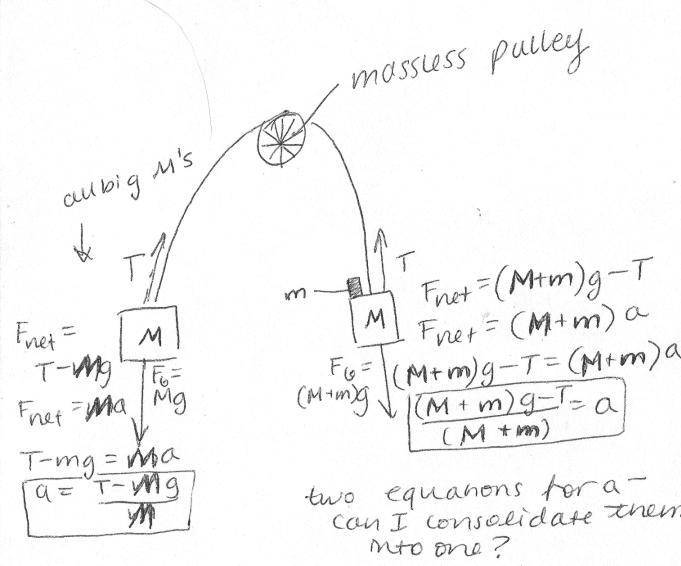 massless pulley
all big M's
T
T
m
M
M
Fnet =
T-Mg
Fnet = Ma
T-mg = Ma
a = T-Mg
M
FG =
Mg
Fnet = (M+m)g-T
Fnet = (M+m) a
FG =
(M+m)g
(M+m)g-T = (M+m)a
(M+m)g-T = a
(M+m)
two equations for a-
can I consolidate them
into one?